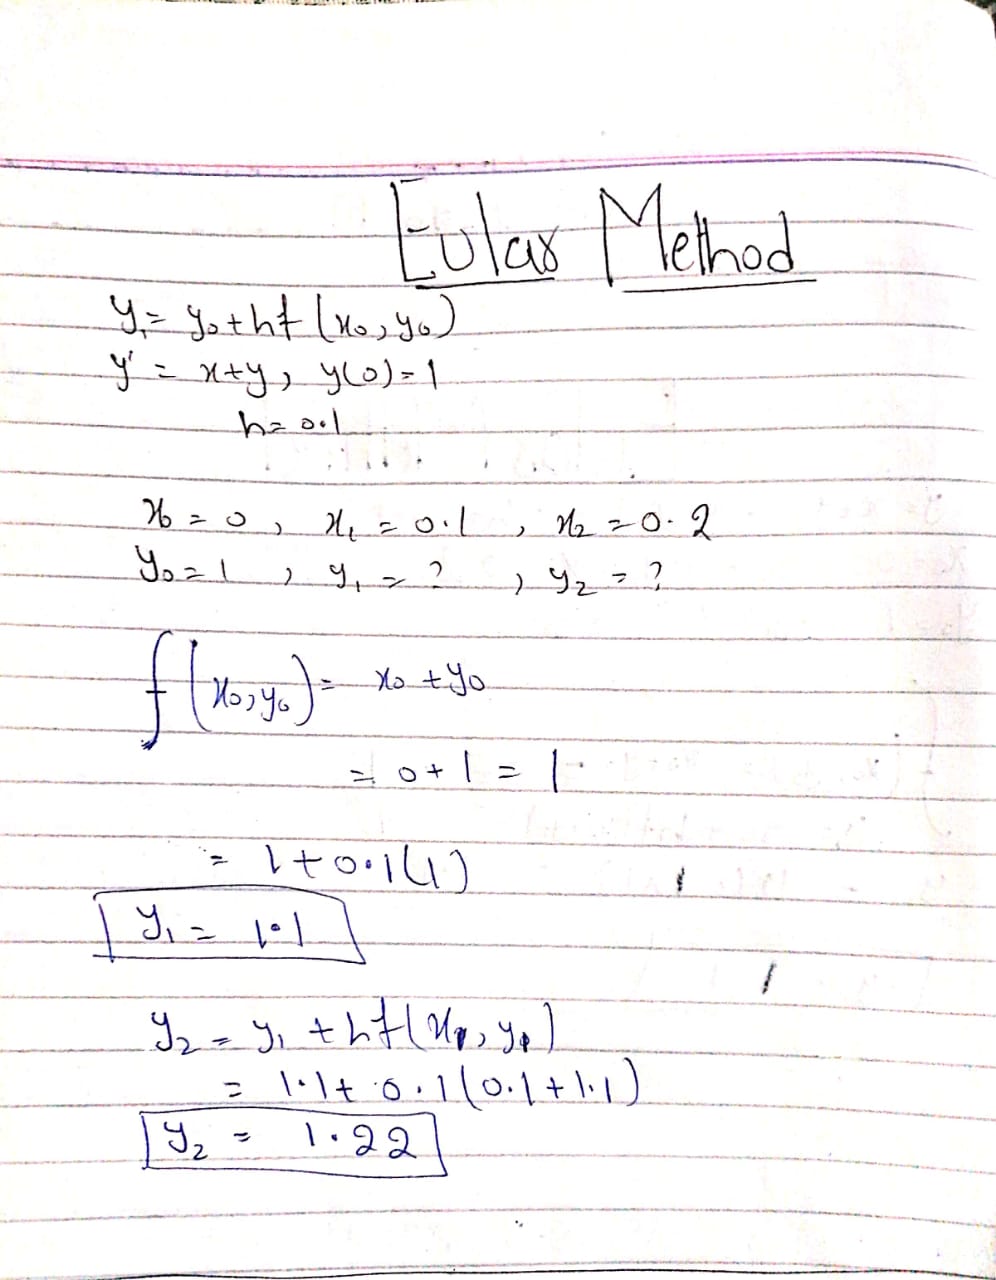 Eular Method
y₁ = y₀ + hf (x₀, y₀)
y' = x+y, y(0)=1
h = 0.1
x₀ = 0, x₁ = 0.1, x₂ = 0.2
y₀ = 1, y₁ = ?, y₂ = ?
f(x₀, y₀) = x₀ + y₀
= 0 + 1 = 1
= 1 + 0.1(1)
y₁ = 1.1
y₂ = y₁ + hf(x₁, y₁)
= 1.1 + 0.1(0.1 + 1.1)
y₂ = 1.22